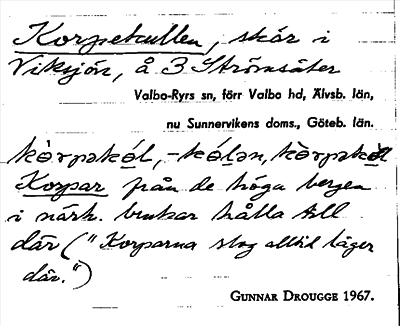 Korpekullen, skär i
Viksjön, å 3 Strömsäter
Valbo-Ryrs sn, förr Valbo hd, Älvsb. län,
nu Sunnervikens doms., Göteb. län.
kòrpəkól, -kólən, kòrpəkòl
Korpar från de höga bergen
i närh. brukar hålla till
där ("Korparna slog alltid läger
där.")
GUNNAR DROUGGE 1967.